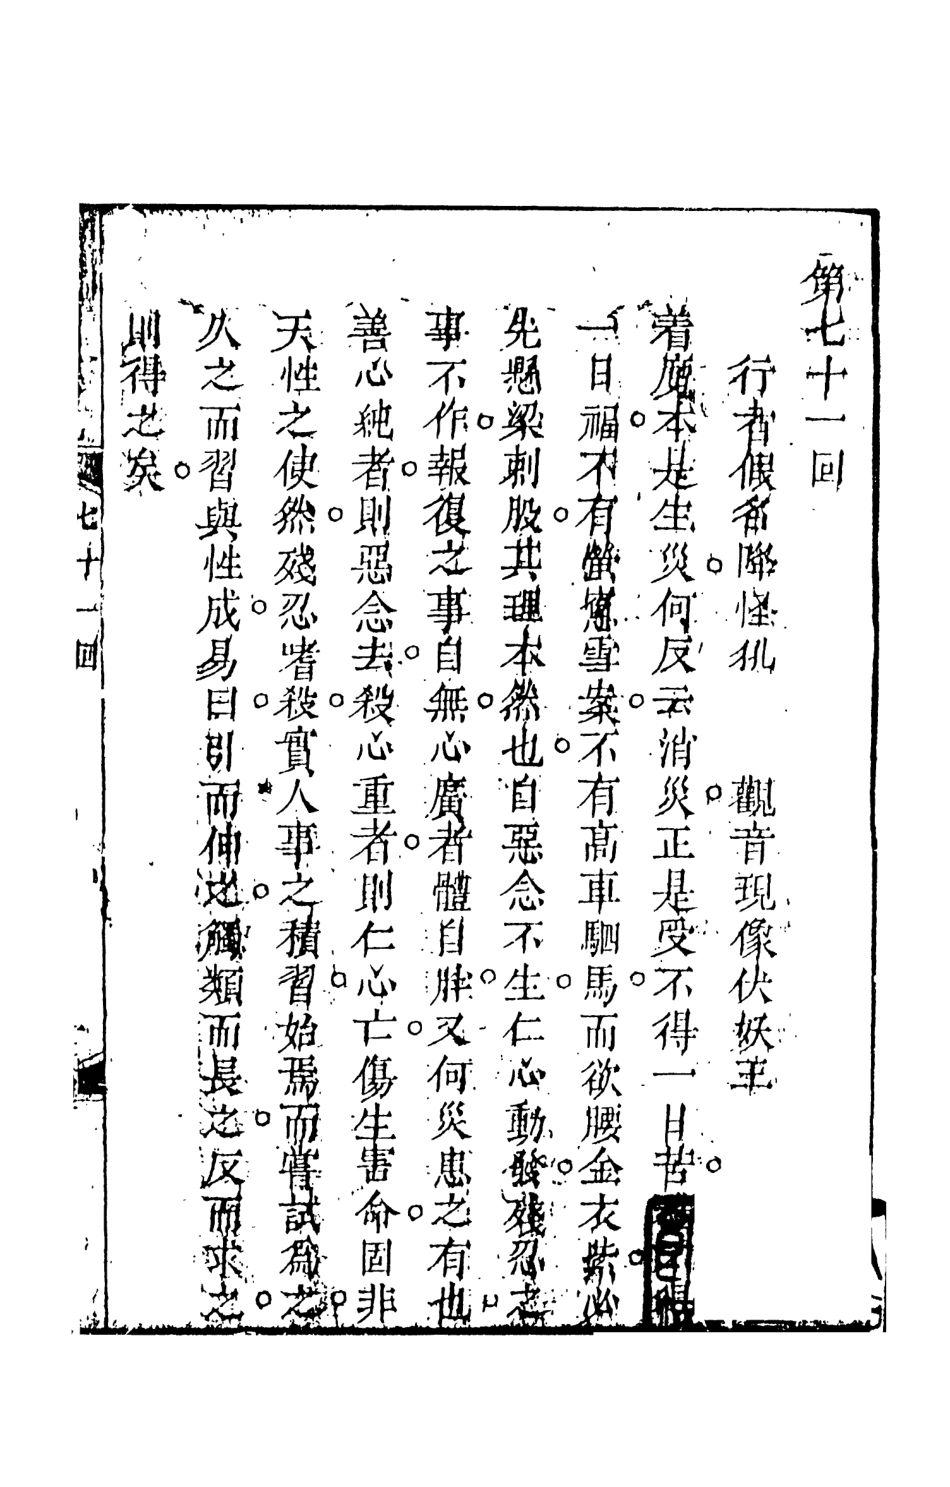 第七十一回
行者假名降怪犼　觀音現像伏妖王
着魔本是生災何反云消災正是受不得一日苦
一日福不有螢窻雪案不有高車駟馬而欲腰金衣紫必
先懸梁刺股其理本然也自惡念不生仁心動發殘忍之
事不作報復之事自無心廣者體自胖又何災患之有也
善心純者則惡念去殺心重者則仁心亡傷生害命固非
天性之使然殘忍嗜殺實人事之積習始焉而嘗試為之
久之而習與性成易曰引而伸之觸類而長之反而求之
則得之矣
七十一回